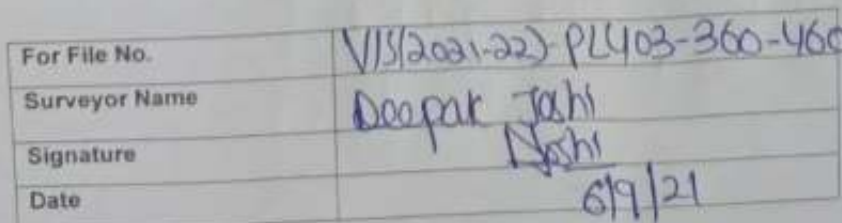 For File No. VIS(2021-22)-PL403-360-460
Surveyor Name Deepak Joshi
Signature Joshi
Date 6/9/21